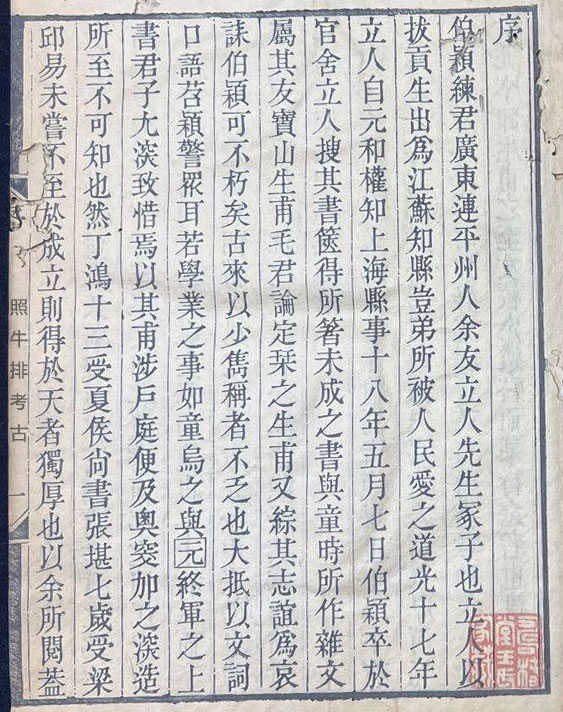 序
伯穎練君廣東連平州人余友立人先生冢子也立人以
拔貢生出爲江蘇知縣豈弟所被人民愛之道光十七年
立人自元和權知上海縣事十八年五月七日伯穎卒於
官舍立人搜其書篋得所箸未成之書與童時所作雜文
屬其友寶山生甫毛君論定栞之生甫又綜其志誼爲哀
誄伯穎可不朽矣古來以少雋稱者不乏也大抵以文詞
口語苕穎警眾耳若學業之事如童烏之與元終軍之上
書君子尢深致惜焉以其甫涉戶庭便及奥窔加之深造
所至不可知也然丁鴻十三受夏侯尙書張堪七歲受梁
邱易未嘗不至於成立則得於天者獨厚也以余所閱蓋
照牛排考古
一